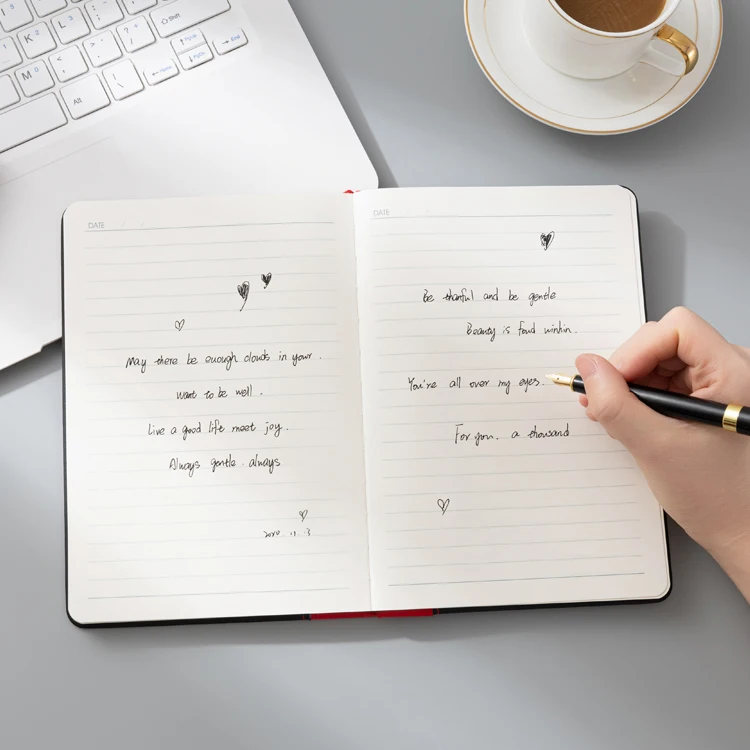 DATE
May there be enough clouds in your.
want to be well.
Live a good life meet joy.
Always gentle. always
DATE
Be thanful and be gentle
Beauty is foud winhin.
You're all over my eyes.
For you. a thousand
Shift
Alt
End
K
L
M